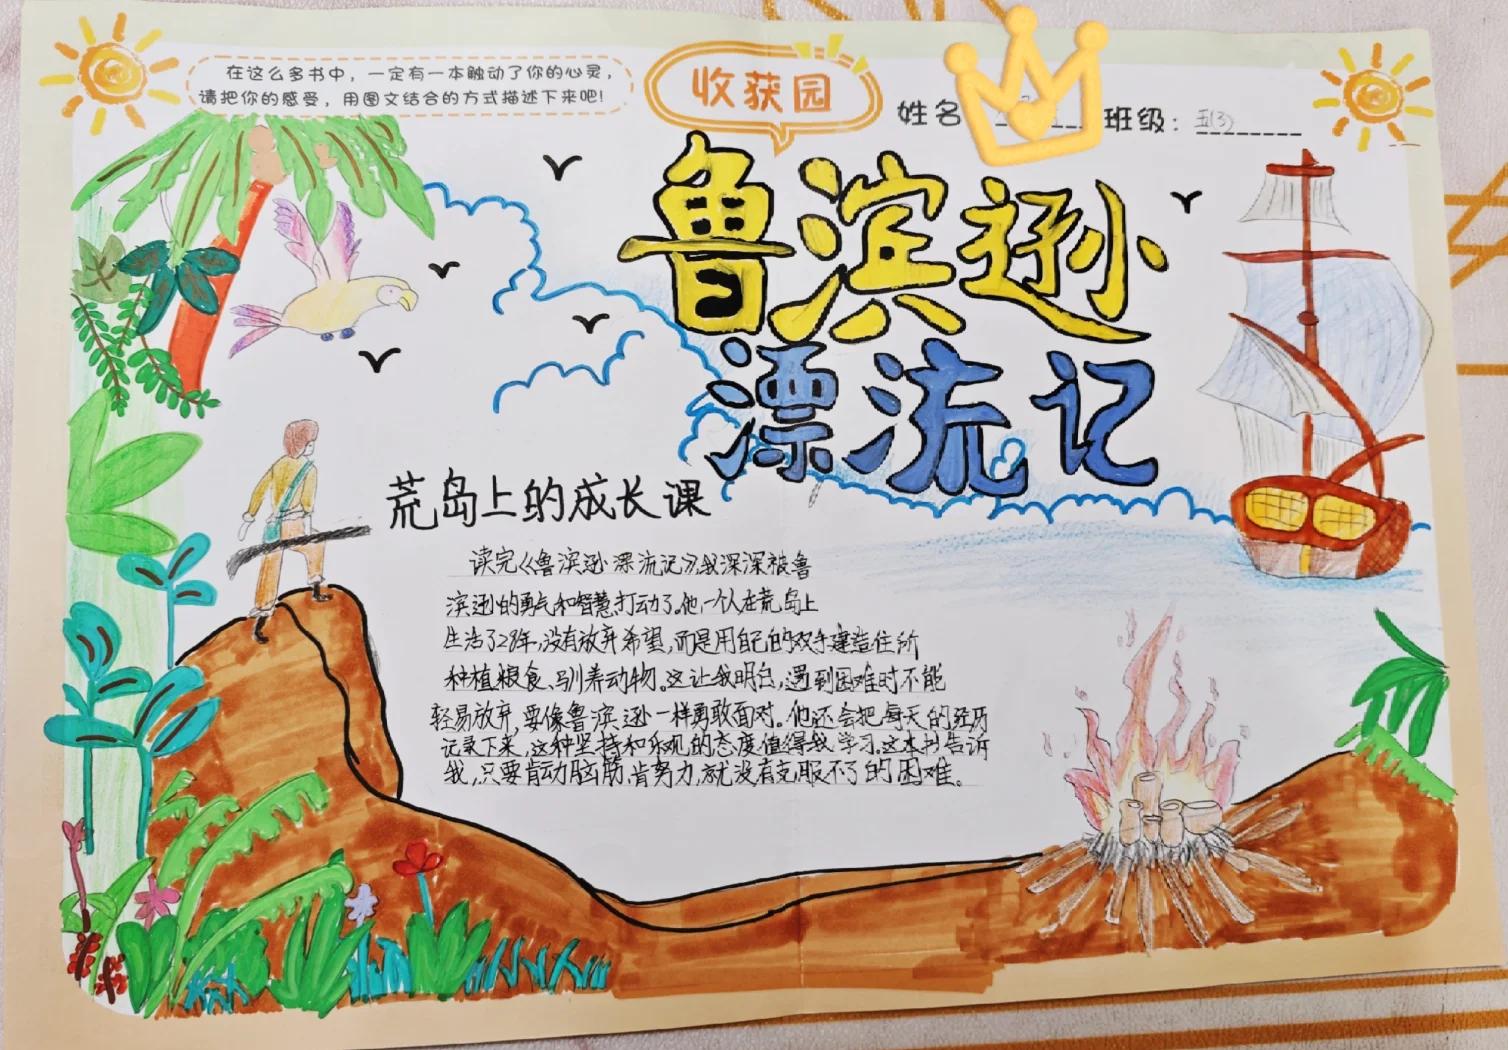 在这么多书中，一定有一本触动了你的心灵，
请把你的感受，用图文结合的方式描述下来吧！
收获园
姓名
班级：五(3)
鲁滨逊
漂流记
荒岛上的成长课
读完《鲁滨逊漂流记》，我深深被鲁
滨逊的勇气和智慧打动了。他一个人在荒岛上
生活了28年，没有放弃希望，而是用自己的双手建造住所
种植粮食、驯养动物。这让我明白，遇到困难时不能
轻易放弃，要像鲁滨逊一样勇敢面对。他还会把每天的经历
记录下来，这种坚持和乐观的态度值得我学习。这本书告诉
我，只要肯动脑筋，肯努力，就没有克服不了的困难。